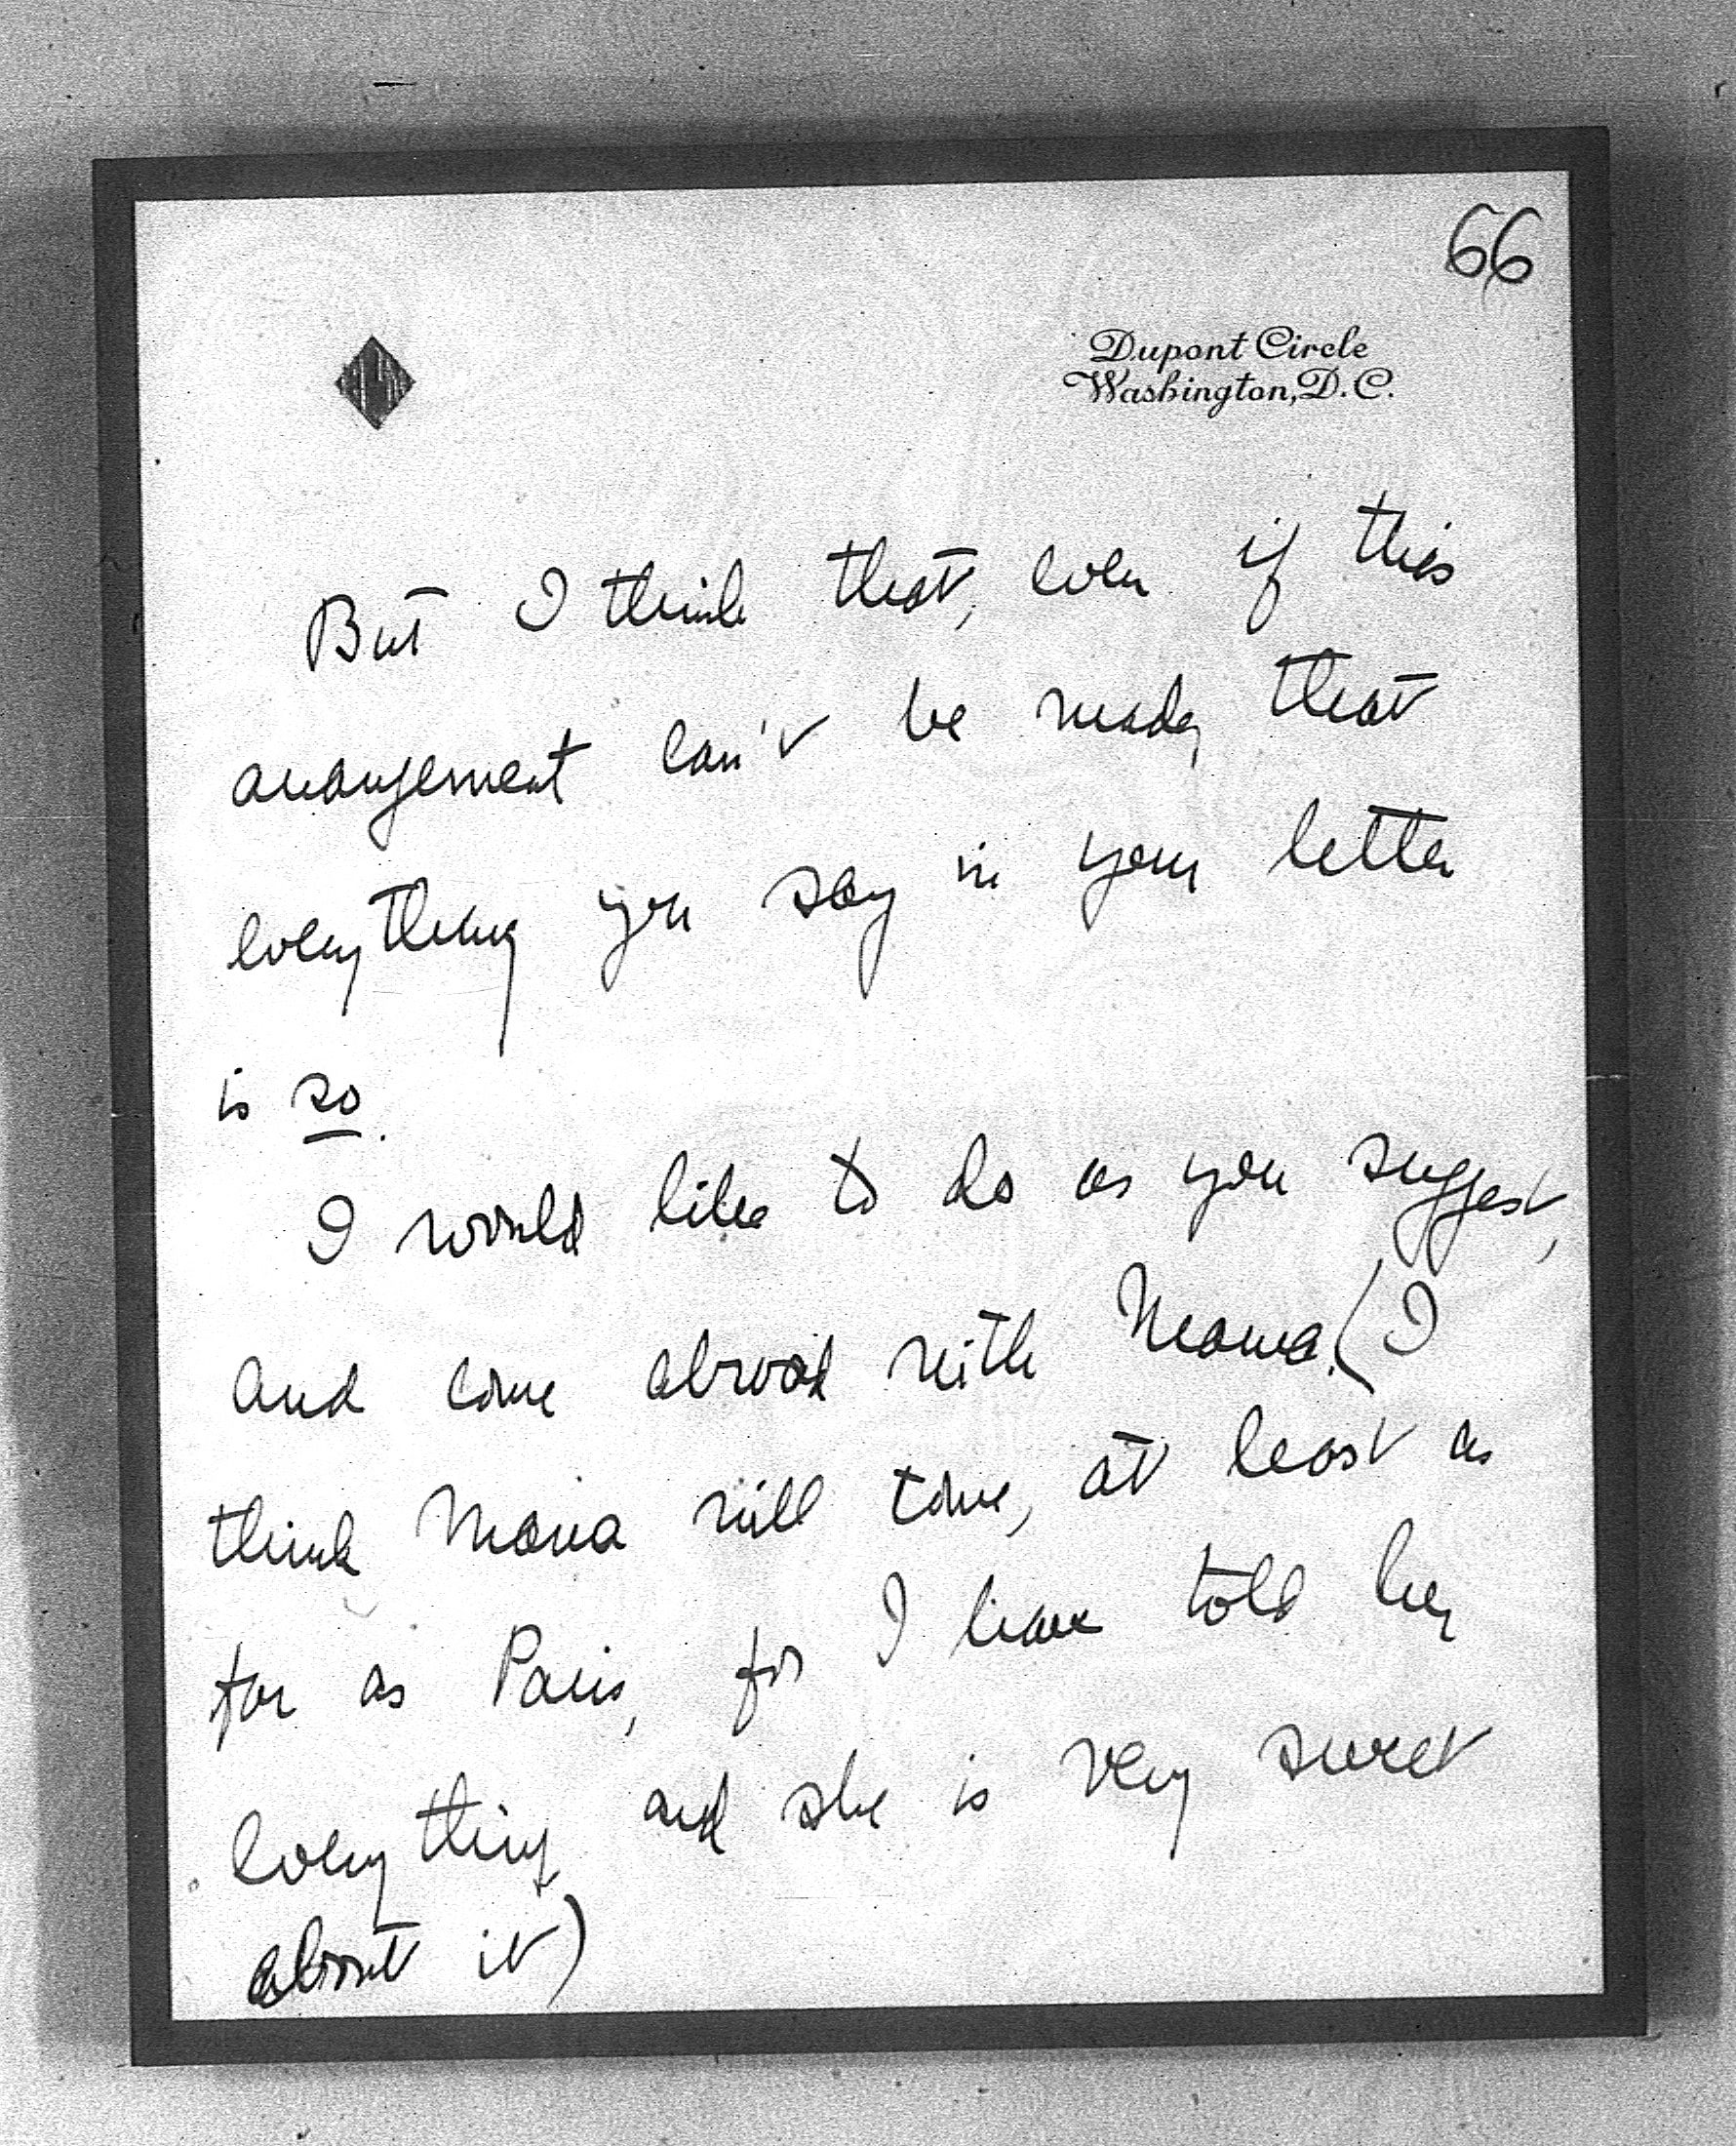 66
Dupont Circle
Washington, D.C.
But I think that, even if this
arrangement can't be made, that
everything you say in your letter
is so.
I would like to do as you suggest,
and come abroad with Mama. (I
think Mama will come, at least as
far as Paris, for I have told her
everything and she is very sweet
about it)